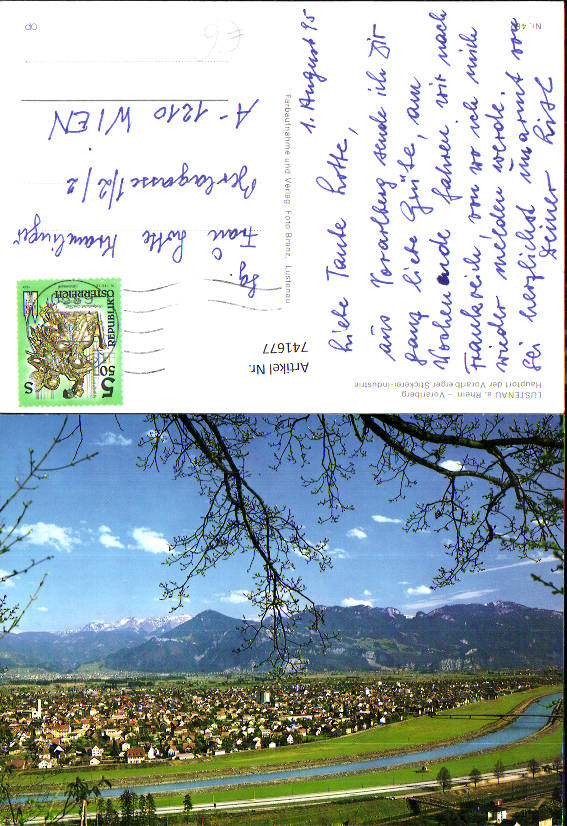 LUSTENAU a. Rhein – Vorarlberg
Hauptort der Vorarlberger Stickerei-Industrie
1. August 95
Liebe Tante Lotte,
aus Vorarlberg sende ich Dir
ganz liebe Grüße, am
Wochenende fahren wir nach
Frankreich von wo ich mich
wieder melden werde.
Sei herzlichst umarmt von
Deiner
Farbaufnahme und Verlag Foto Branz, Lustenau
Artikel Nr.
741677
REPUBLIK
ÖSTERREICH
5 50
S
Frau Lotte
1/2/2
A-1210 WIEN
€6
OP